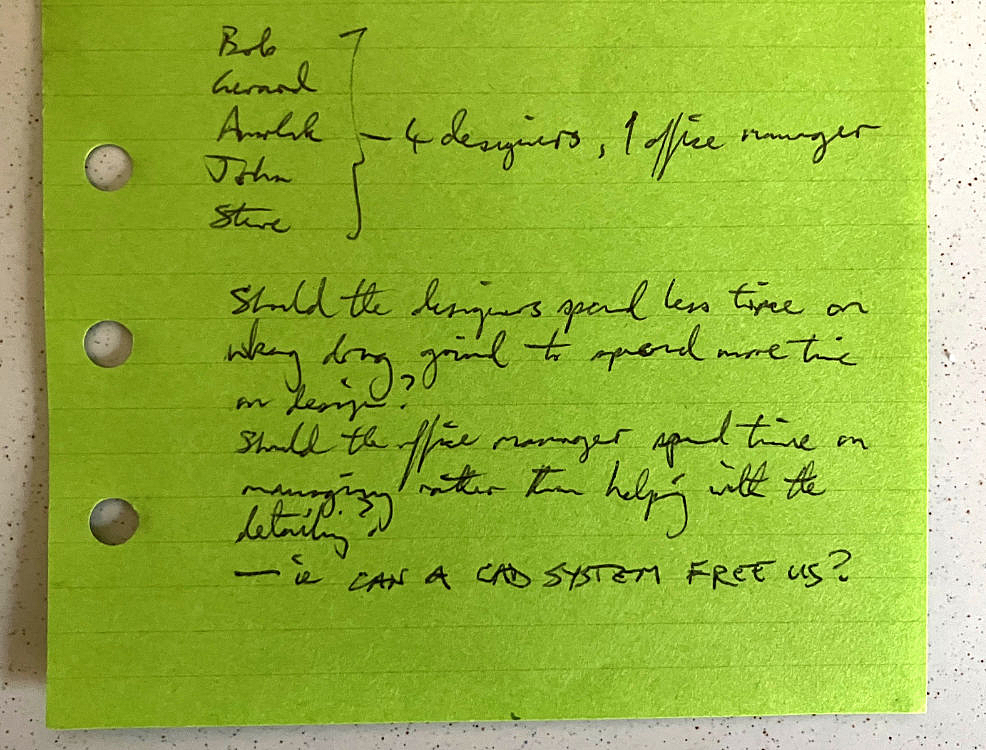 Bob
Gerard
John
Steve
— 4 designers, 1 office manager
Should the designers spend less time on
to spend more time
on design?
Should the office manager spend time on
managing rather than helping with the
detailing?
— ie CAN A CAD SYSTEM FREE US?